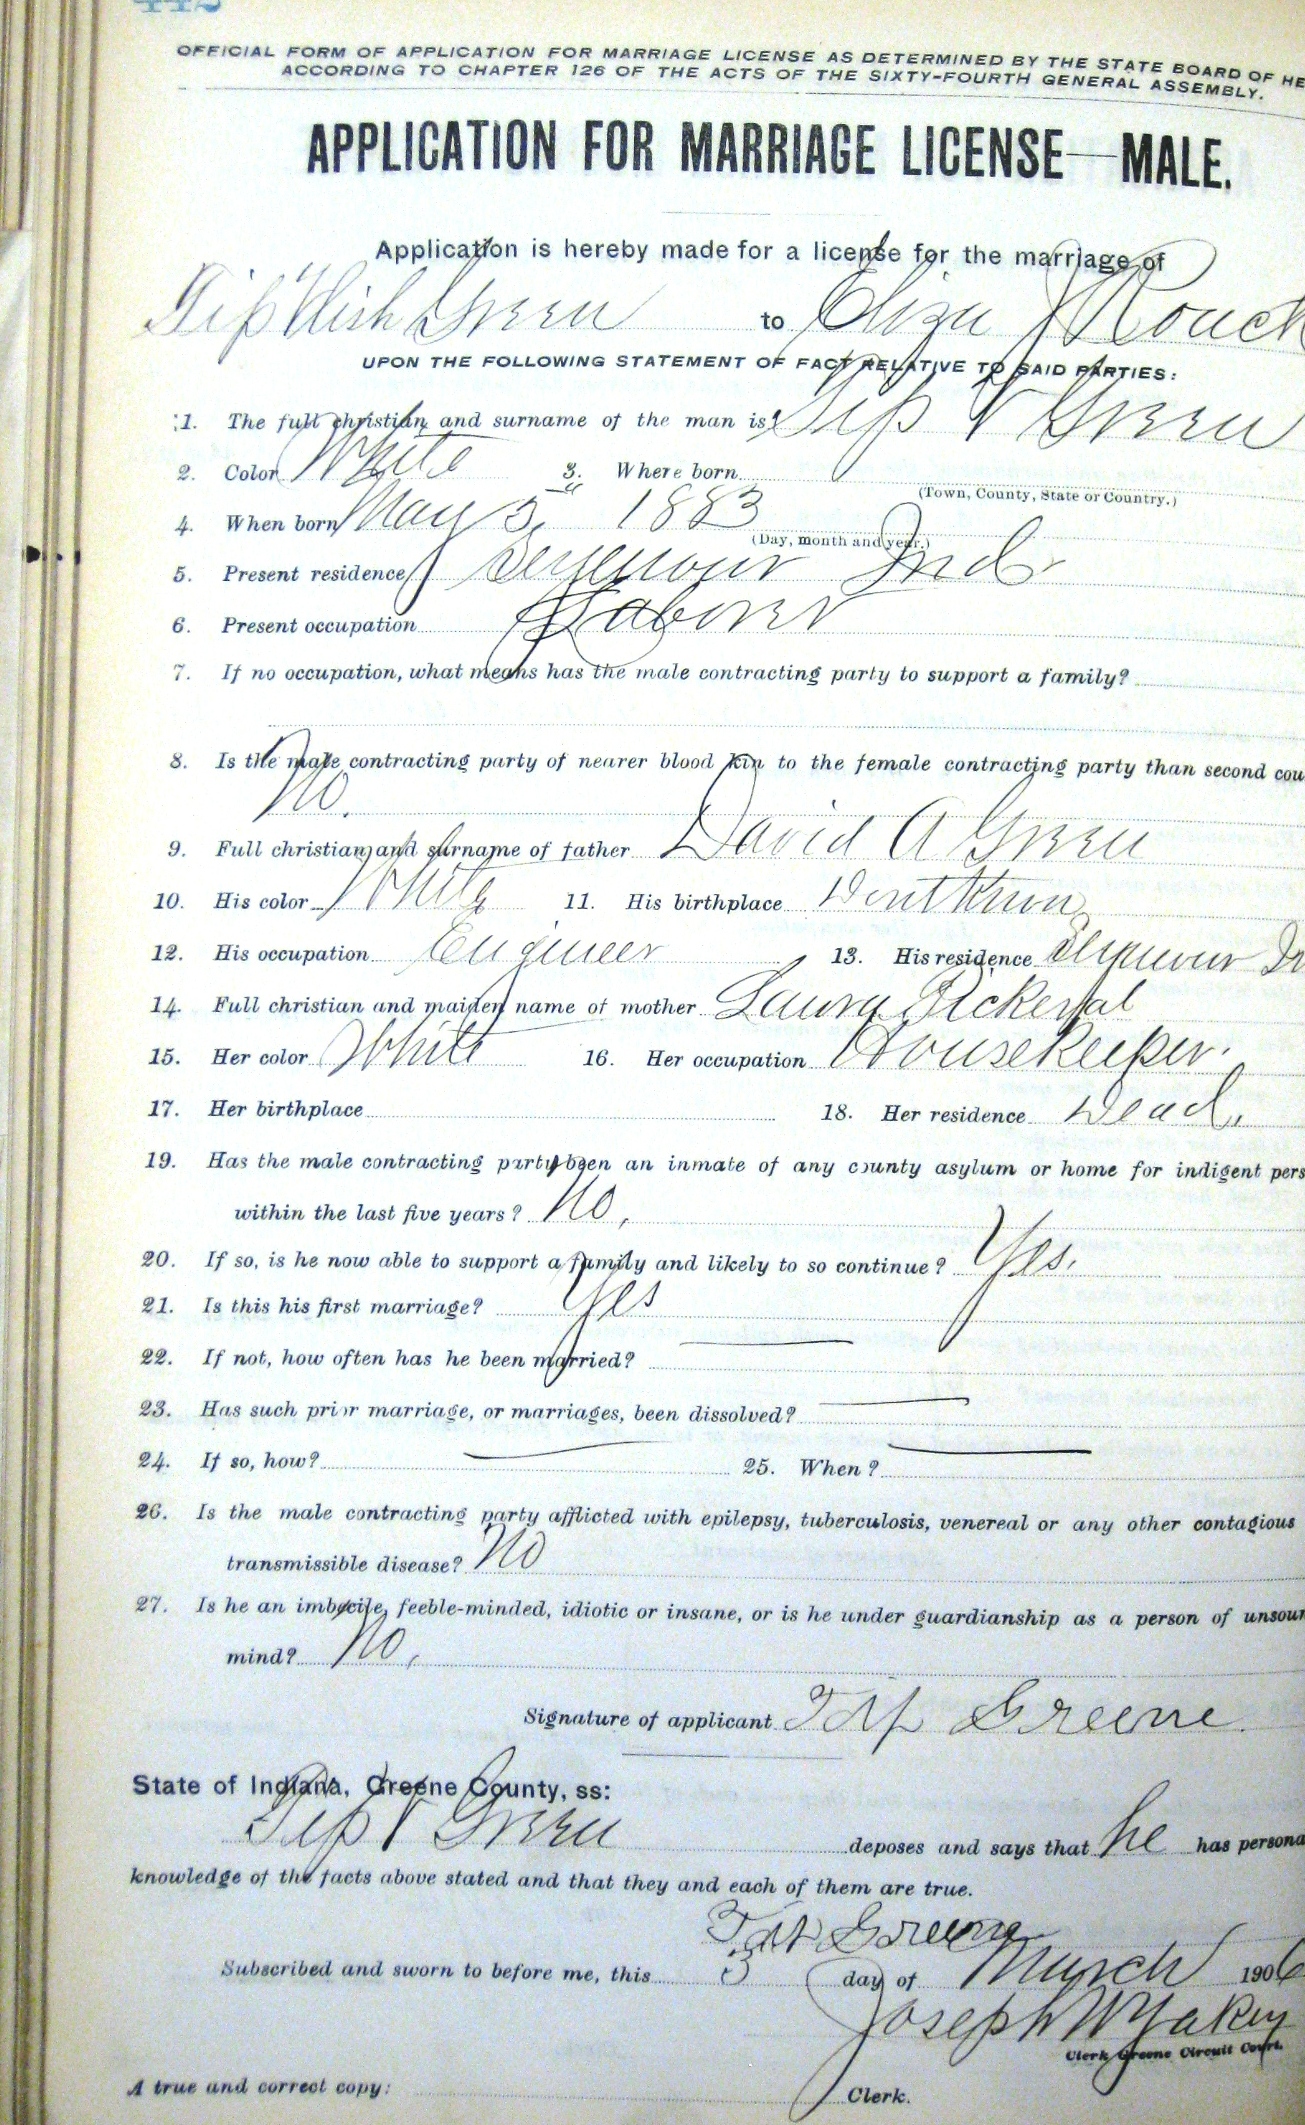 442
OFFICIAL FORM OF APPLICATION FOR MARRIAGE LICENSE AS DETERMINED BY THE STATE BOARD OF HE
ACCORDING TO CHAPTER 126 OF THE ACTS OF THE SIXTY-FOURTH GENERAL ASSEMBLY.
APPLICATION FOR MARRIAGE LICENSE—MALE.
Application is hereby made for a license for the marriage of
Tip Green to Eliza J Rouch
UPON THE FOLLOWING STATEMENT OF FACT RELATIVE TO SAID PARTIES:
1. The full christian and surname of the man is Tip V Green
2. Color White 3. Where born
(Town, County, State or Country.)
4. When born May 3, 1883
(Day, month and year.)
5. Present residence Seymour Ind
6. Present occupation Laborer
7. If no occupation, what means has the male contracting party to support a family?
8. Is the male contracting party of nearer blood kin to the female contracting party than second cou
No.
9. Full christian and surname of father David A Green
10. His color White 11. His birthplace Dont Know
12. His occupation Engineer 13. His residence Seymour In
14. Full christian and maiden name of mother Laura Pickeral
15. Her color White 16. Her occupation Housekeeper.
17. Her birthplace 18. Her residence Dead.
19. Has the male contracting party been an inmate of any county asylum or home for indigent pers
within the last five years? No,
20. If so, is he now able to support a family and likely to so continue? Yes.
21. Is this his first marriage? Yes
22. If not, how often has he been married?
23. Has such prior marriage, or marriages, been dissolved?
24. If so, how? 25. When?
26. Is the male contracting party afflicted with epilepsy, tuberculosis, venereal or any other contagious
transmissible disease? No
27. Is he an imbecile, feeble-minded, idiotic or insane, or is he under guardianship as a person of unsoun
mind? No,
Signature of applicant Tip Greene
State of Indiana, Greene County, ss:
Tip V Green deposes and says that he has persona
knowledge of the facts above stated and that they and each of them are true.
Tip Greene
Subscribed and sworn to before me, this 3 day of March 1906
Joseph W Yakey
Clerk Greene Circuit Court.
A true and correct copy: Clerk.